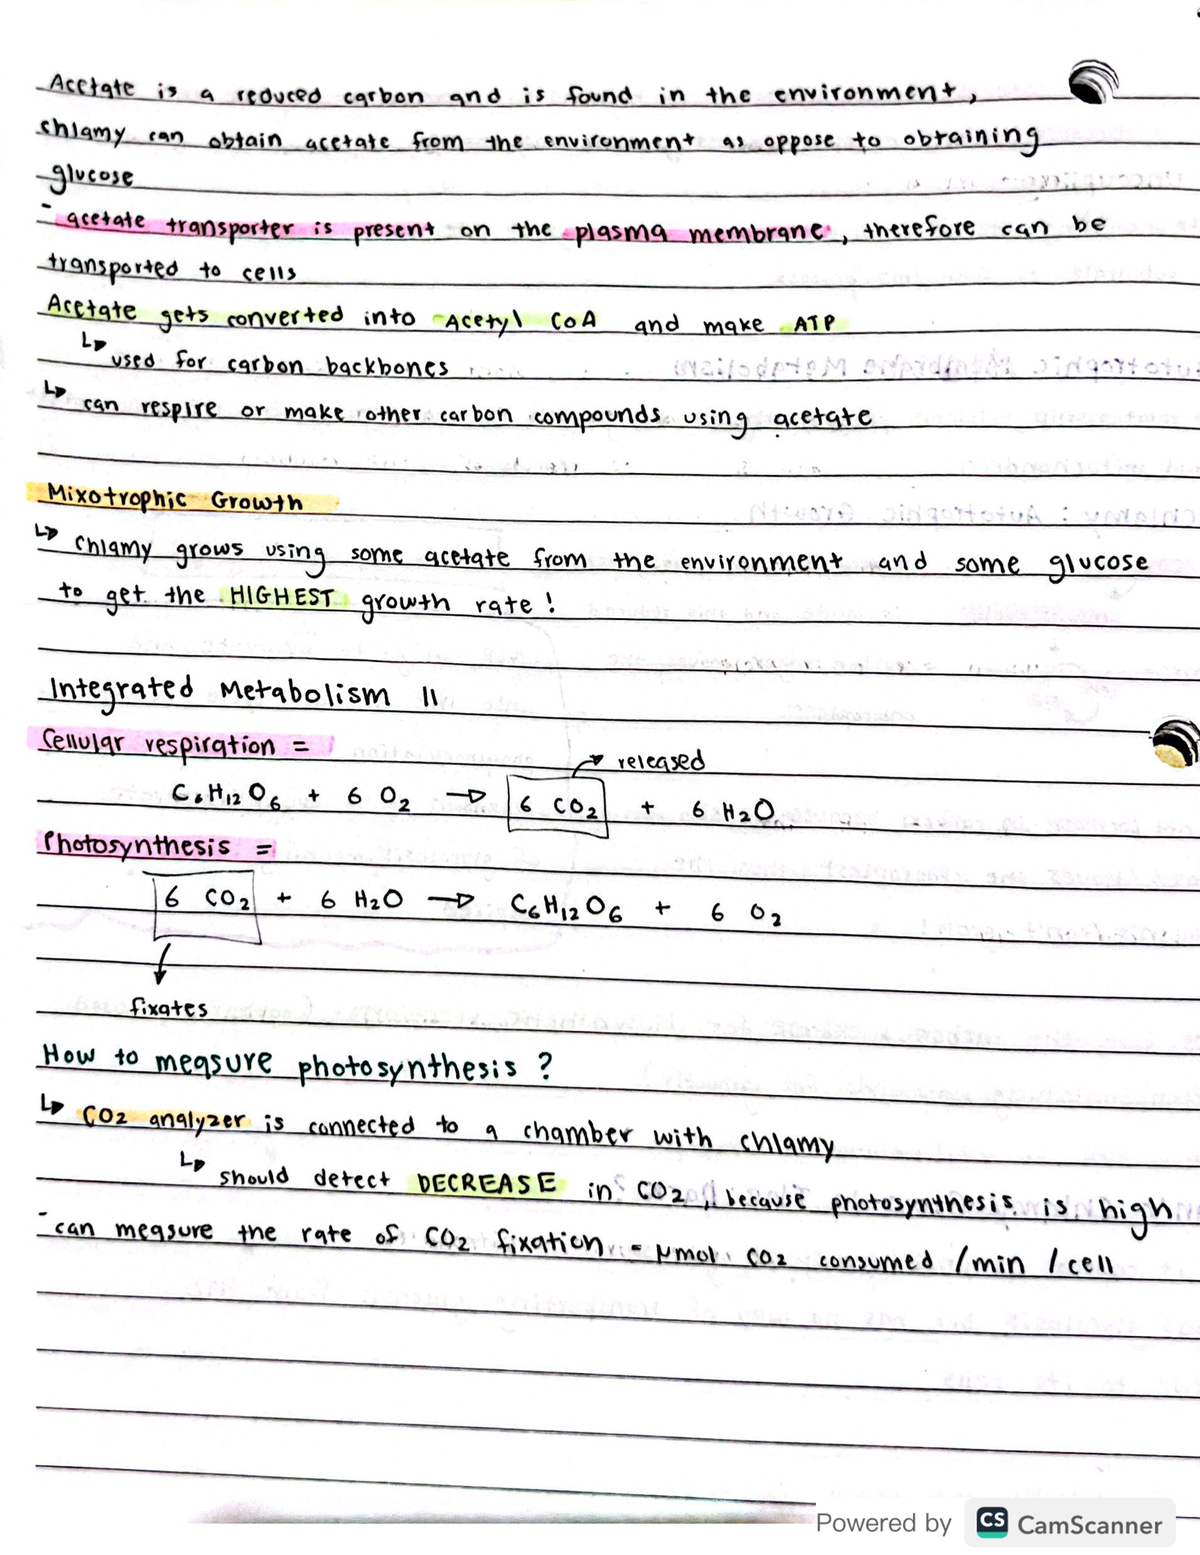 Acetate is a reduced carbon and is found in the environment,
chlamy can obtain acetate from the environment as oppose to obtaining
glucose
- acetate transporter is present on the plasma membrane, therefore can be
transported to cells
Acetate gets converted into Acetyl CoA and make ATP
↳ used for carbon backbones
↳ can respire or make other carbon compounds using acetate
Mixotrophic Growth
↳ Chlamy grows using some acetate from the environment and some glucose
to get the HIGHEST growth rate!
Integrated Metabolism II
Cellular respiration =
→ released
C6H12O6 + 6 O2 → 6 CO2 + 6 H2O
Photosynthesis =
6 CO2 + 6 H2O → C6H12O6 + 6 O2
↓
fixates
How to measure photosynthesis?
↳ CO2 analyzer is connected to a chamber with chlamy
↳ should detect DECREASE in CO2, because photosynthesis is high
- can measure the rate of CO2 fixation = μmol CO2 consumed /min /cell
Powered by CS CamScanner